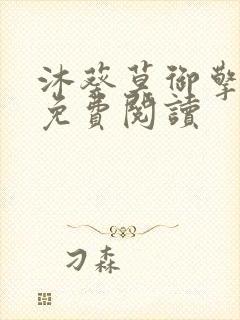 沐葵草御擎
免費閱讀
刁森